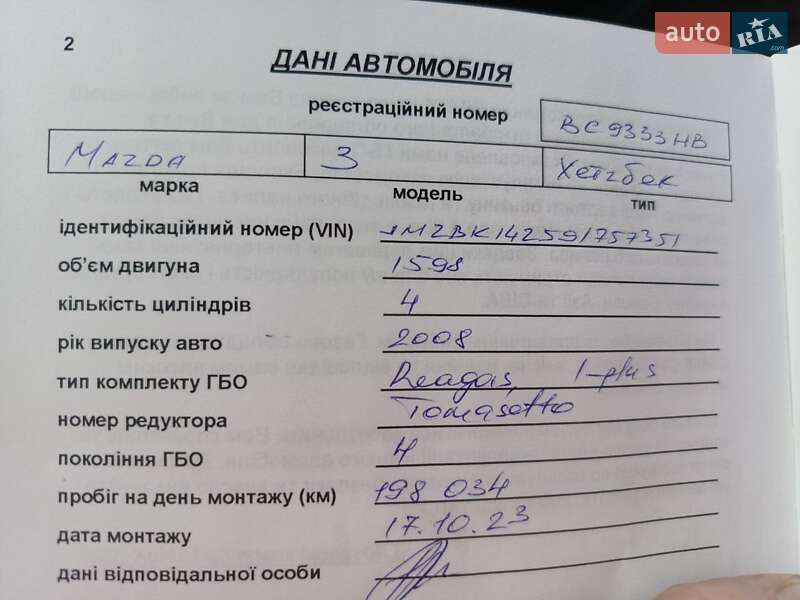 2
auto RIA.com
ДАНІ АВТОМОБІЛЯ
реєстраційний номер ВС9333НВ
Mazda 3 Хетчбек
марка модель тип
ідентифікаційний номер (VIN) JMZBK142591757351
об'єм двигуна 1598
кількість циліндрів 4
рік випуску авто 2008
тип комплекту ГБО Reagas, 1-plus
номер редуктора Tomasetto
покоління ГБО 4
пробіг на день монтажу (км) 198 034
дата монтажу 17.10.23
дані відповідальної особи